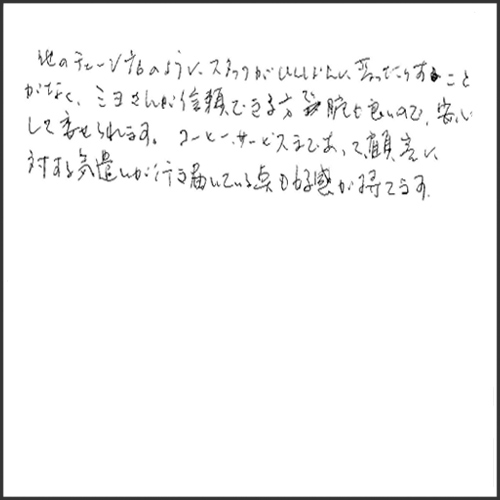 他のチェーン店のように、スタッフがひんぱんに変ったりすること
がなく、ミヨさんが信頼できる方で腕も良いので、安心
して任せられます。コーヒーサービスまであって顧客に
対する気遣いが行き届いている点も好感が持てます。